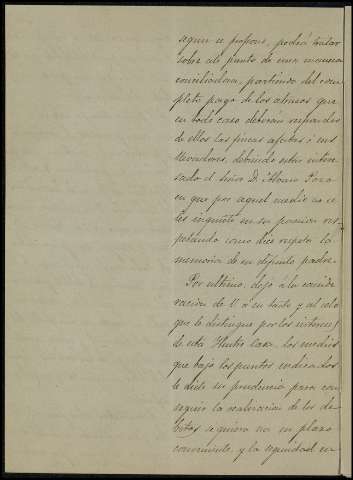 segun se propone, podrá tratar
sobre este punto de una manera
conciliadora, partiendo del com-
pleto pago de los atrasos que
en todo caso deberán responder
de ellos las fincas afectas ó sus
llevadores, debiendo estar intere-
sado el Señor D. Alonso
en que por aquel medio no se
les inquiete en su posesion res-
petando como dice respeta la
memoria de su difunto padre.
Por ultimo, dejo á la conside-
racion de V. á su tacto y al celo
que le distingue por los intereses
de esta Ilustre Casa, los medios
que bajo los puntos indicados
le dicte su prudencia para con-
seguir la realizacion de los dé-
bitos siquiera sea en plazo
conveniente, y la seguridad en